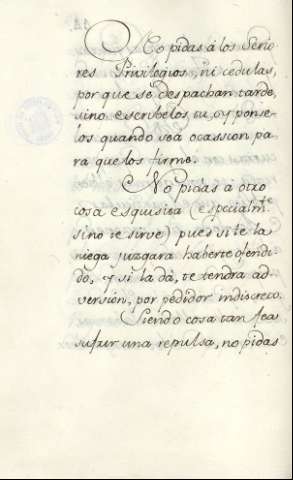 No pidas á los Seño
res Privilegios, ni cedulas,
por que se despachan tarde,
sino escribelos tu, y ponse-
los quando sea ocassion pa
ra que los firme.
No pidas a otro
cosa esquisita (especialmte
sino te sirve) pues si te la
niega juzgara haberte ofendi
do, y si la dá, te tendra ad-
version, por pedidor indiscreto.
Siendo cosa tan fea
sufrir una repulsa, no pidas